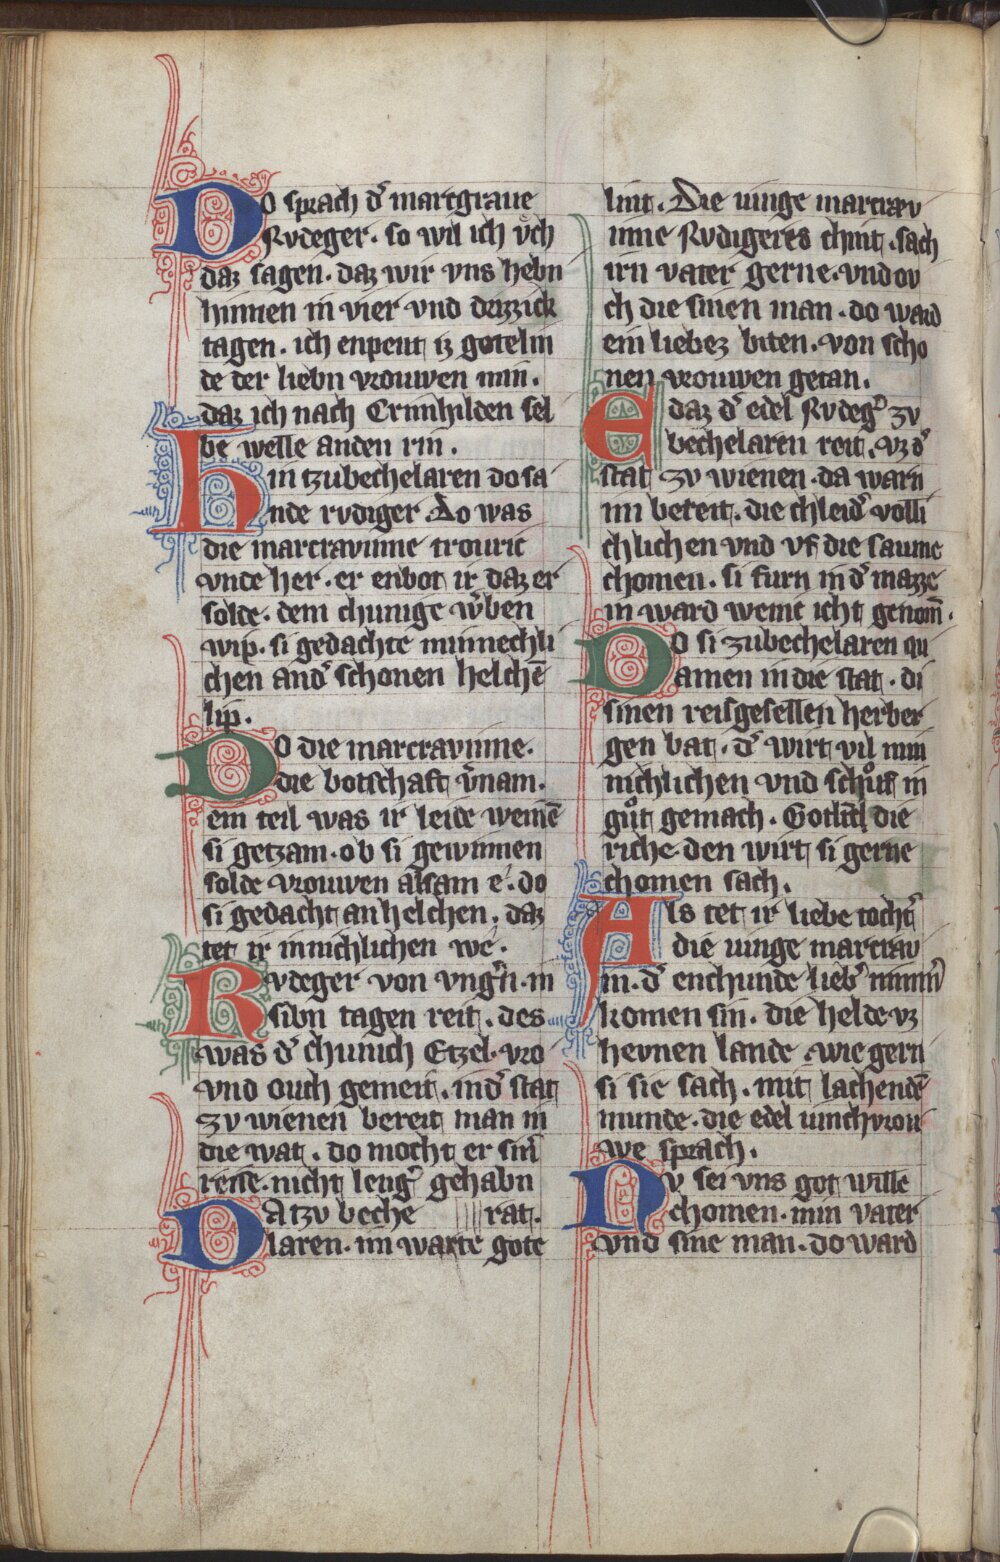 Do sprach d̾ martgraue
Rvdeger. so wil ich vͦch
daz sagen. daz wir vns hebn
hinnen in vier vnd drizzick
tagen. ich enpeut iz gotelin
de der liebn vrouwen min.
daz ich nach Crimhilden sel
be welle anden rin.
hin tzu bechelaren do sa
nde rvdiger Do was
die marcravinne trouric
vnde her. er enbot ir daz er
solde. dem chunige w̾ben
wip. si gedachte minnechli
chen and̾ schonen helchē
lip.
Do die marcravinne.
die botschaft v̾nam.
ein teil was ir leide weinē
si getzam. ob si gewinnen
solde vrouwen alsam e. do
si gedacht an helchen. daz
tet ir innichlichen we.
Rvdeger von vng̾n. in
sibn tagen reit. des
was d̾ chunich Etzel. vro
vnd ouch gemeit. ind̾ stat
zv wienen bereit man in
die wat. do mocht er sin̾
reise. nicht leng̾ gehabn
DAtzv beche rat.
laren. im warte gote
lint. Die iunge marcrav
inne Rvdigeres chint. sach
irn vater gerne. vnd ov
ch die sinen man. do ward
ein liebez biten. von scho
nen vrouwen getan.
E daz d̾ edel Rvdeg̾ zv
bechelaren reit. vz d̾
stat zv wienen. da warn
im bereit. die chleid̾ volli
chlichen vnd vf die saume
chomen. si furn in d̾ mazze
in ward wenic icht genom̄.
Do si zubechelaren qu
amen in die stat. di
sinen reisgesellen herber
gen bat. d̾ wirt vil min
nichlichen vnd schuͦff in
guͦt gemach. Gotlīt die
riche. den wirt si gerne
chomen sach.
Als tet ir liebe tocht̾
die iunge marcrav
in. d̾ enchunde lieb̾ nimm̾
komen sin. die helde vz
hevnen lande. wie gern
si sie sach. mit lachendē
munde. die edel iunchvrou
we sprach.
Nv sei vns got wille
chomen. min vater
vnd sine man. do ward